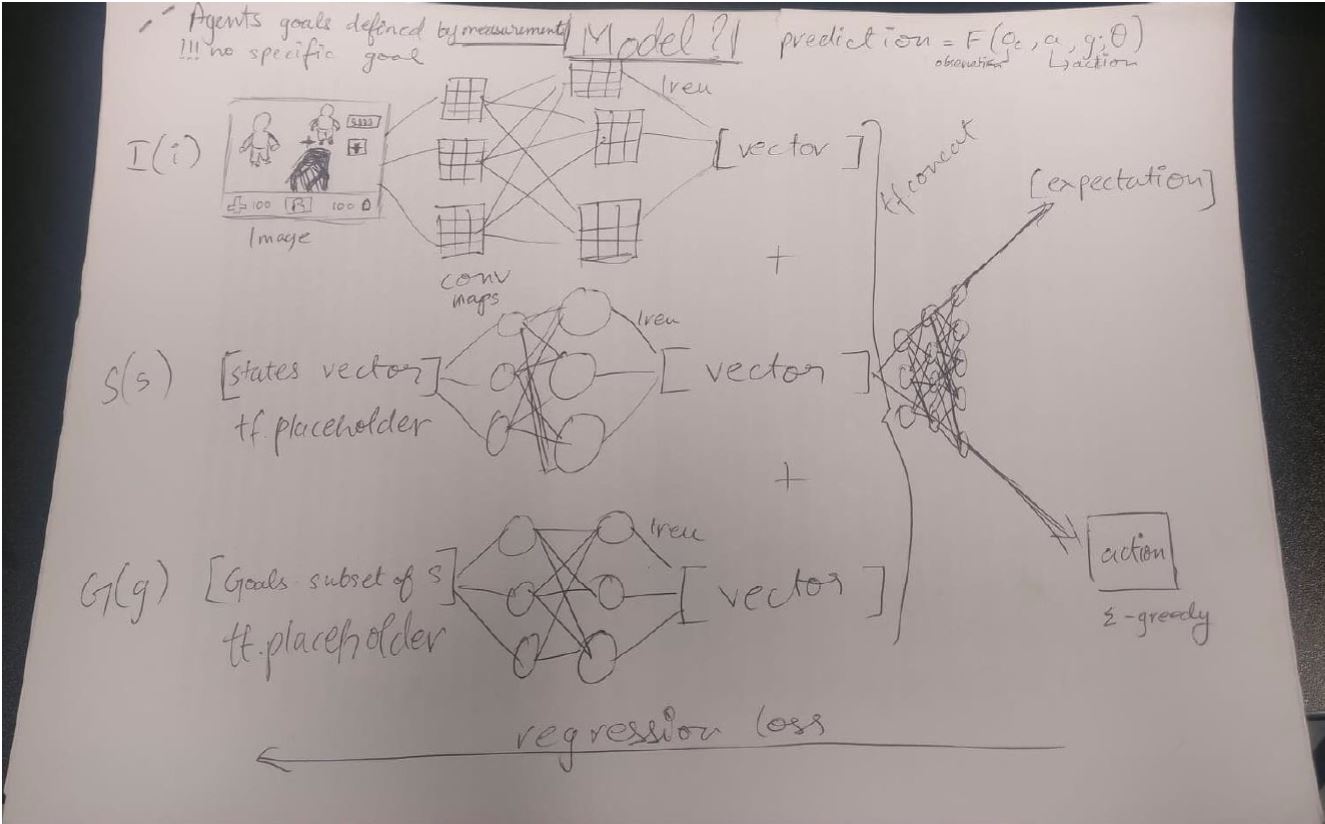 Agents goals defined by measurements
!!! no specific goal
Model ?!
prediction = F(o, a, g; θ)
observation
action
I(i)
100
100
Image
conv
maps
lreu
[vector]
tf.concat
[expectation]
+
S(s)
[states vector]
tf.placeholder
lreu
[vector]
+
action
Σ-greedy
G(g)
[Goals subset of s]
tf.placeholder
lreu
[vector]
regression loss